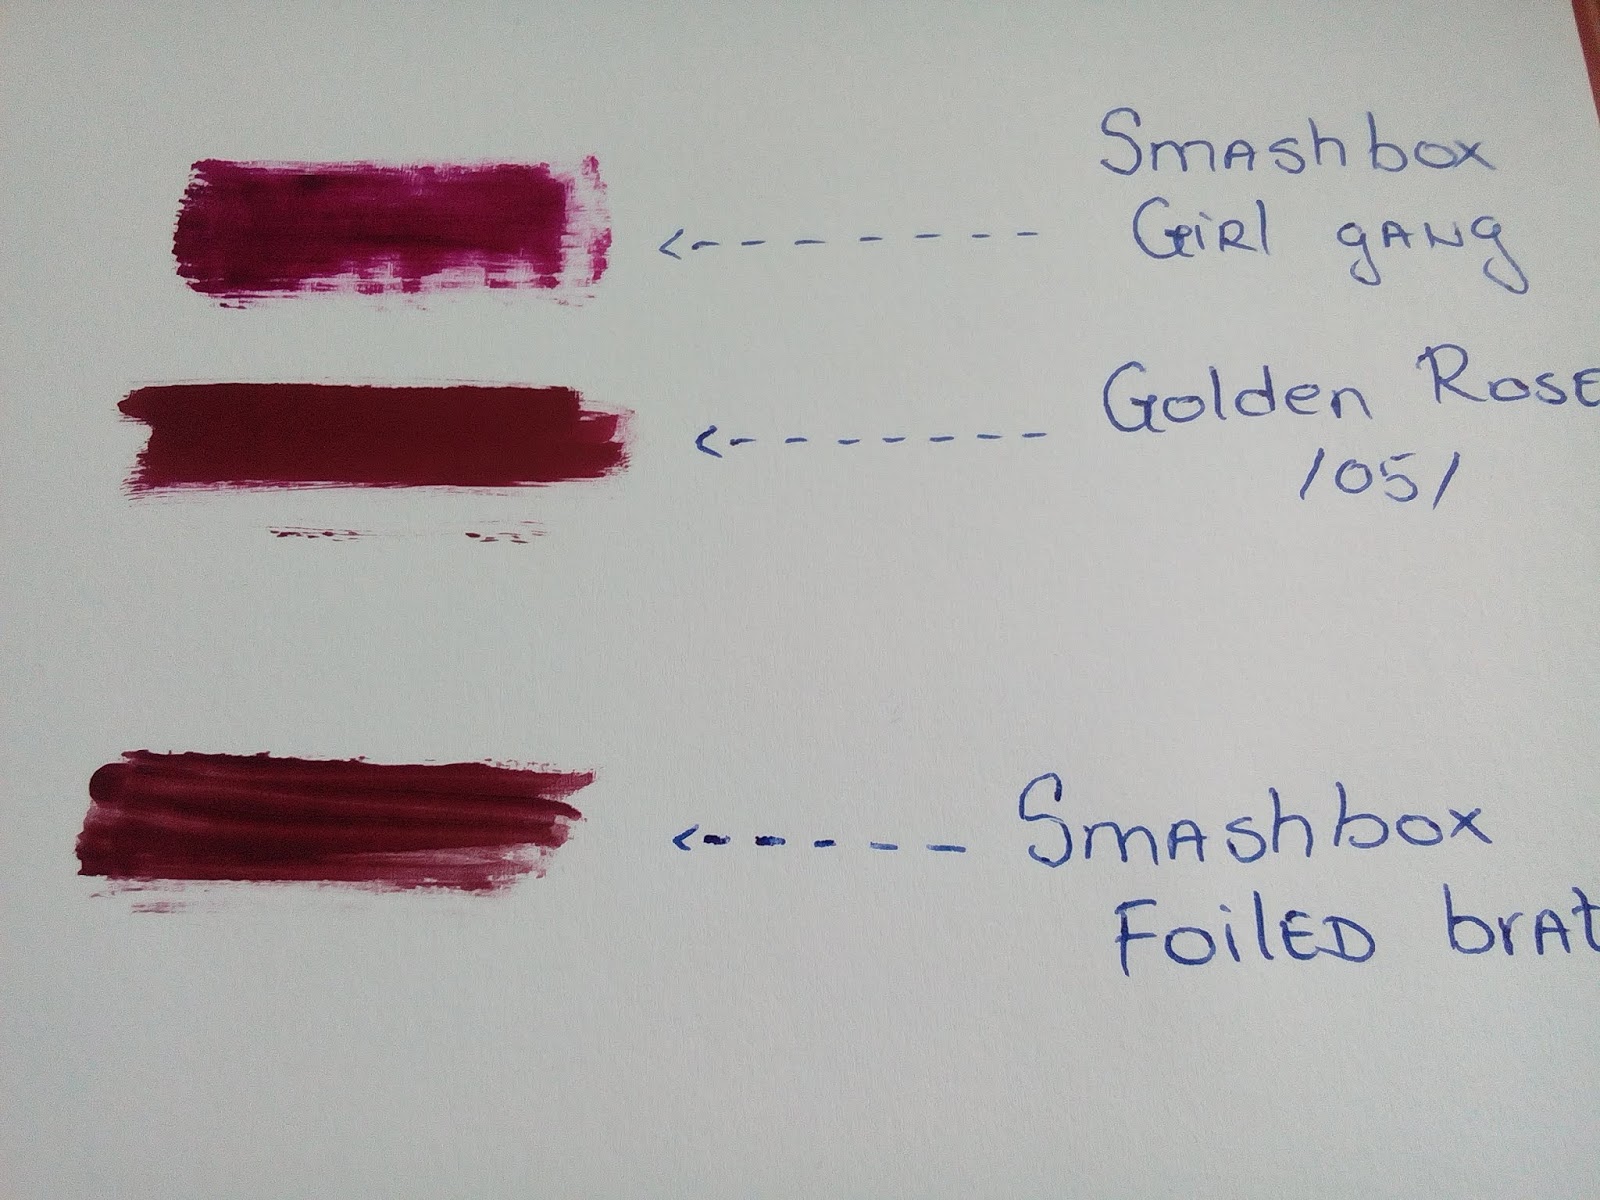 Smashbox
Girl gang
Golden Rose
/05/
Smashbox
Foiled brat